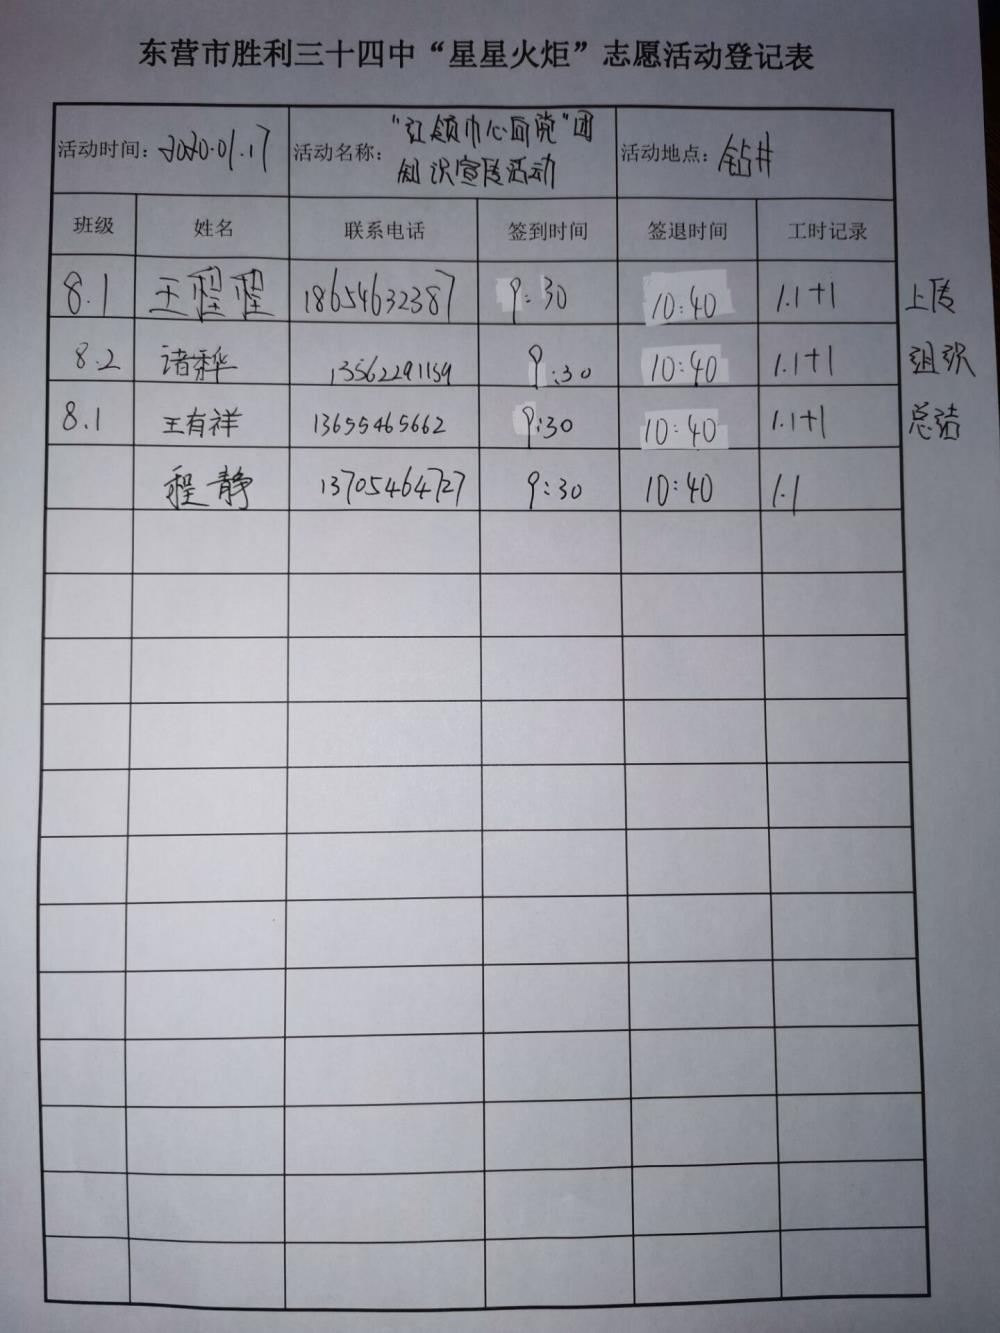 东营市胜利三十四中“星星火炬”志愿活动登记表
活动时间：2020.01.17 活动名称：“红领巾心向党”团知识宣传活动 活动地点：钻井
班级 姓名 联系电话 签到时间 签退时间 工时记录
8.1 王程程 18654632387 9:30 10:40 1.1+1 上传
8.2 诸秉华 13562291159 9:30 10:40 1.1+1 组织
8.1 王有祥 13655465662 9:30 10:40 1.1+1 总结
程静 13705464727 9:30 10:40 1.1